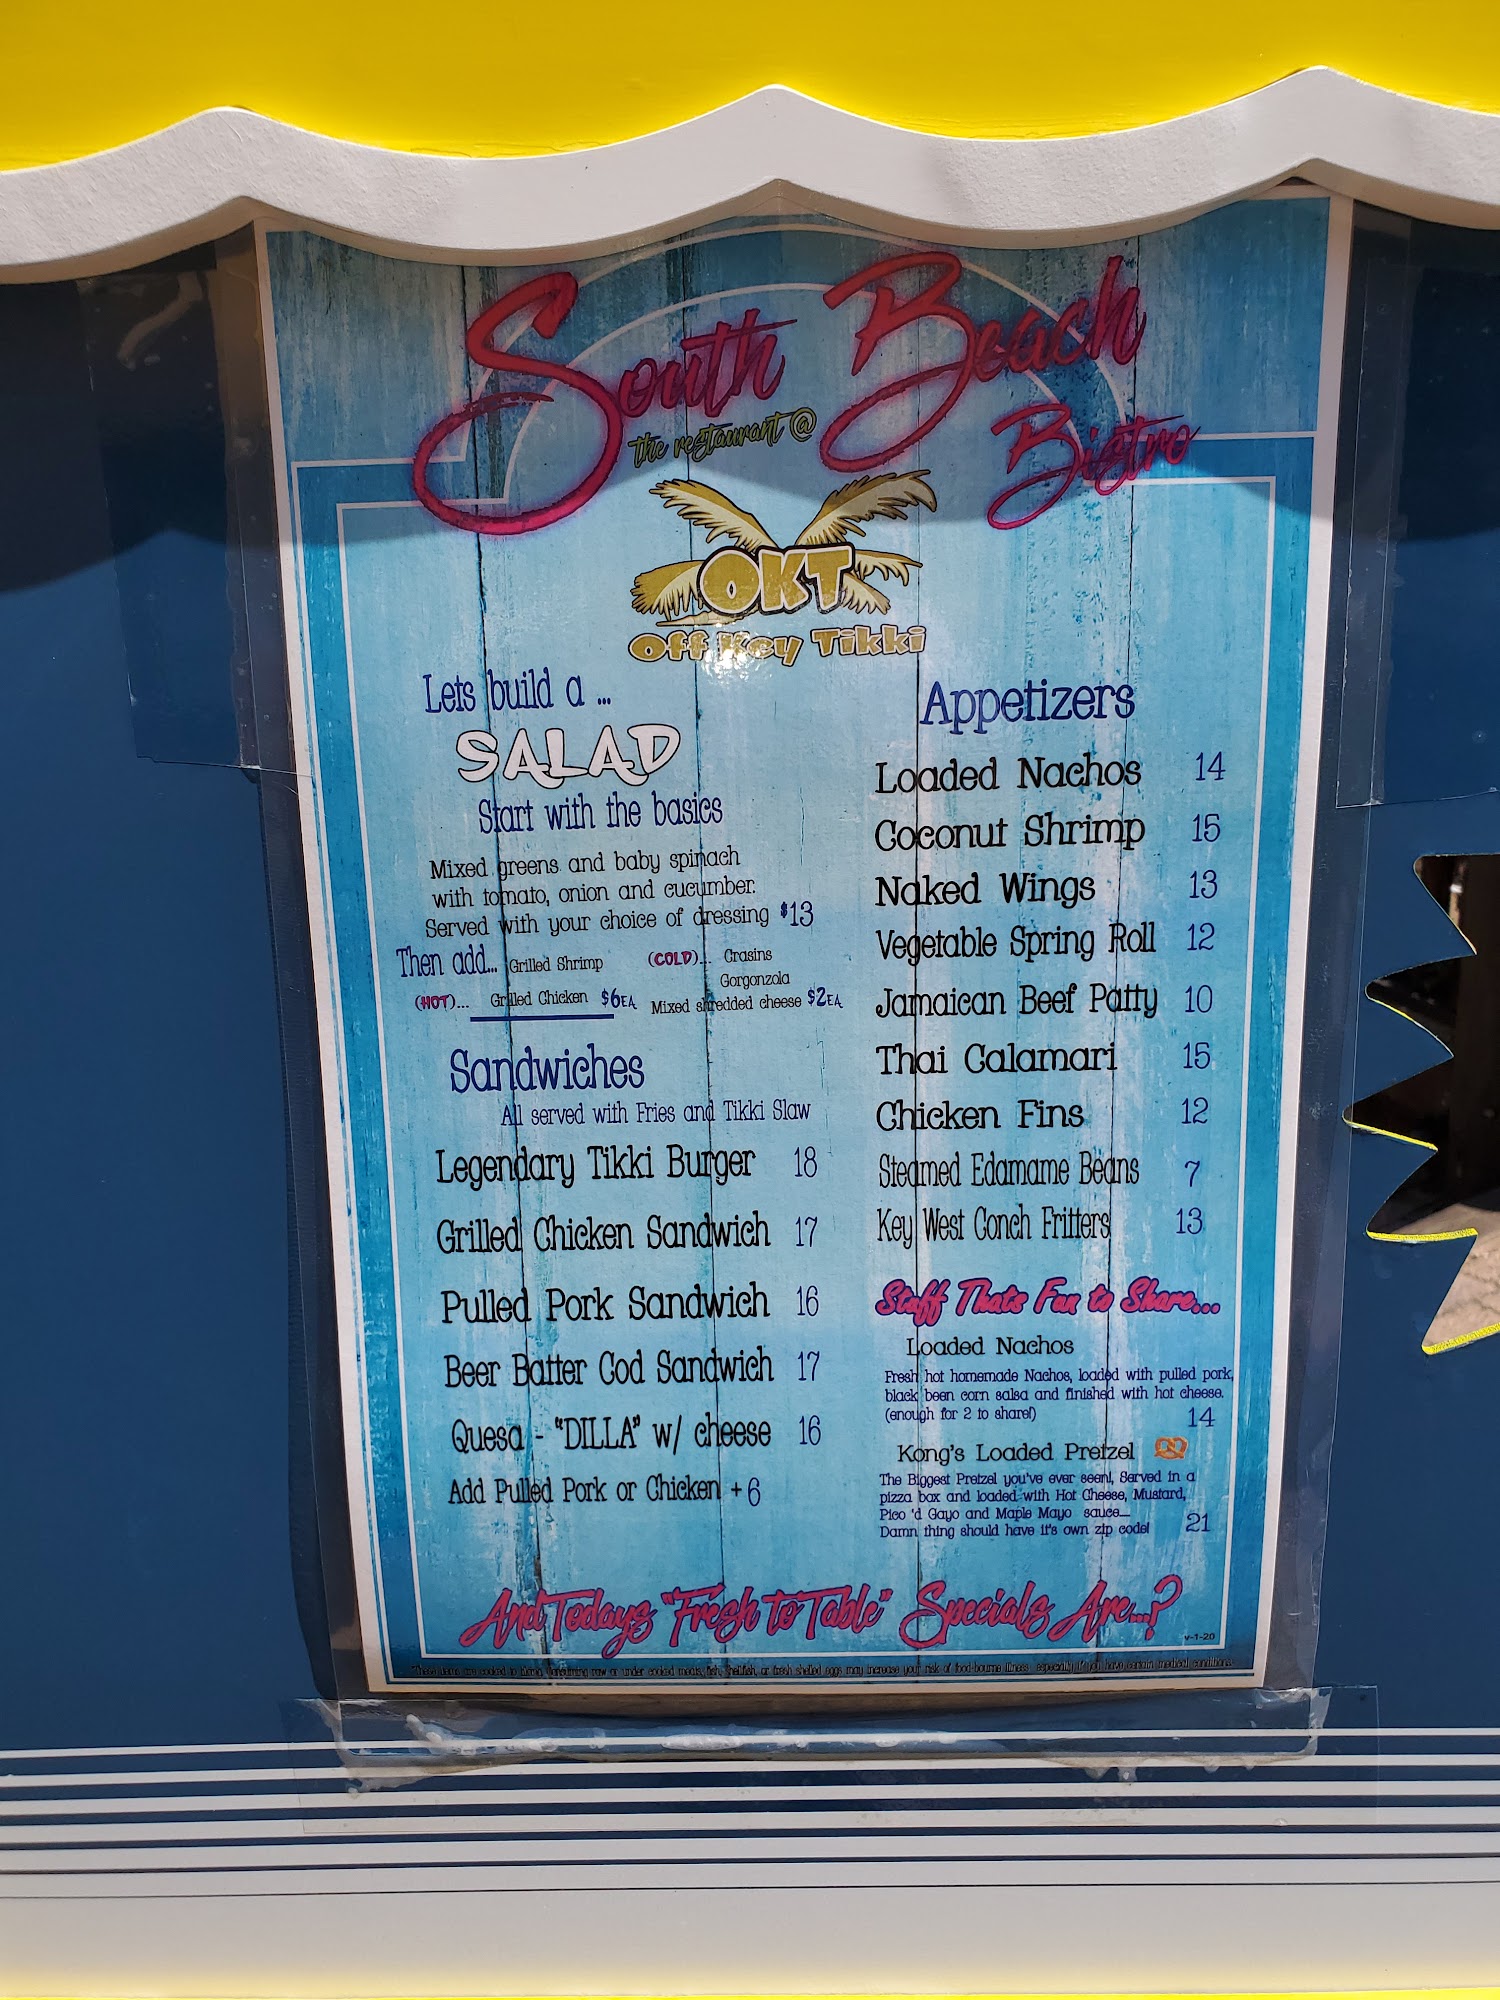 South Beach
the restaurant @
Bistro
OKT
Off Key Tikki
Lets build a ...
SALAD
Start with the basics
Mixed greens and baby spinach
with tomato, onion and cucumber.
Served with your choice of dressing $13
Then add... Grilled Shrimp
(HOT)... Grilled Chicken $6EA
(COLD)... Crasins
Gorgonzola
Mixed shredded cheese $2EA
Sandwiches
All served with Fries and Tikki Slaw
Legendary Tikki Burger 18
Grilled Chicken Sandwich 17
Pulled Pork Sandwich 16
Beer Batter Cod Sandwich 17
Quesa - "DILLA" w/ cheese 16
Add Pulled Pork or Chicken + 6
Appetizers
Loaded Nachos 14
Coconut Shrimp 15
Naked Wings 13
Vegetable Spring Roll 12
Jamaican Beef Patty 10
Thai Calamari 15
Chicken Fins 12
Steamed Edamame Beans 7
Key West Conch Fritters 13
Stuff Thats Fun to Share...
Loaded Nachos
Fresh hot homemade Nachos, loaded with pulled pork,
black been corn salsa and finished with hot cheese.
(enough for 2 to share!) 14
Kong's Loaded Pretzel
The Biggest Pretzel you've ever seen!, Served in a
pizza box and loaded with Hot Cheese, Mustard,
Pico 'd Gayo and Maple Mayo sauce....
Damn thing should have it's own zip code! 21
And Todays "Fresh to Table" Specials Are...?
v-1-20
"These items are cooked to order. Consuming raw or under cooked meats, fish, shellfish, or fresh shelled eggs may increase your risk of food-bourne illness, especially if you have certain medical conditions.